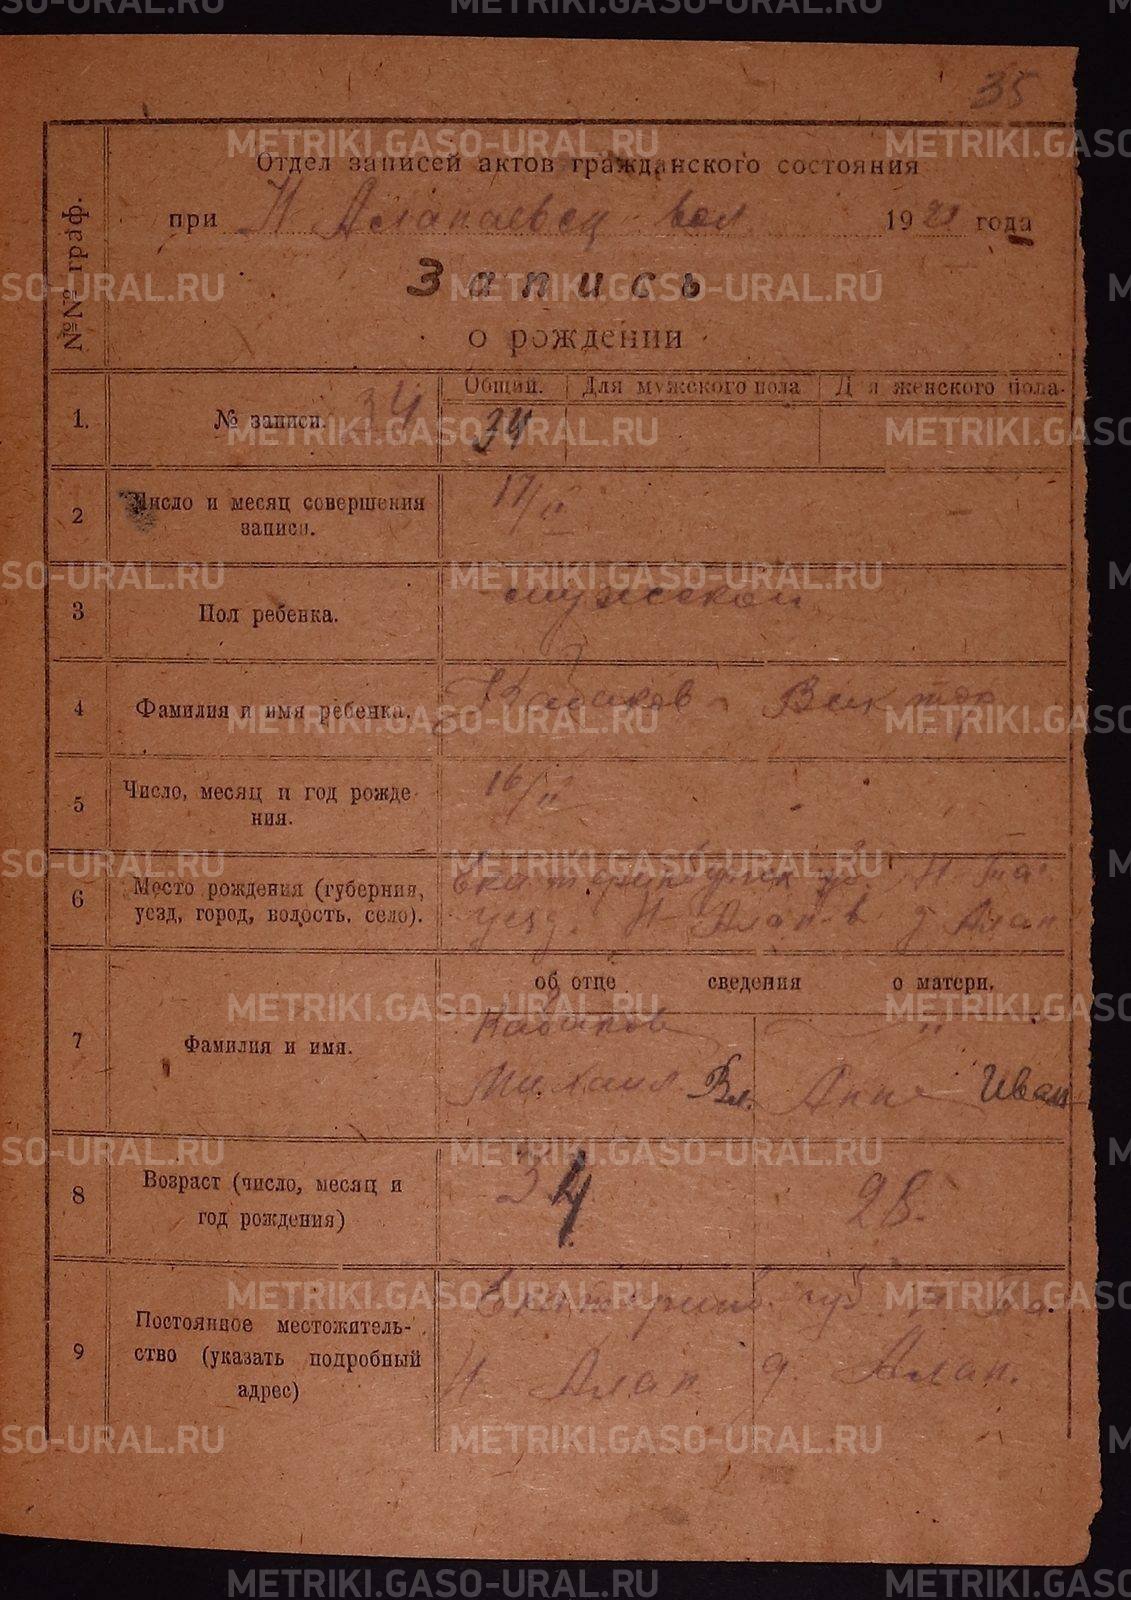 35
Отдел записей актов гражданского состояния
при Н Алапаевец вол. 1921 года
№№ граф.
Запись
о рождении
Общий. Для мужского пола Д я женского пола
1. № записи. 34 34
2 Число и месяц совершения
записи. 17/II
3 Пол ребенка. мужской
4 Фамилия и имя ребенка. Кабаков Виктор
5 Число, месяц и год рожде-
ния. 16/II
6 Место рождения (губерния,
уезд, город, волость, село).
Екатеринбургск губ. Н. Таг.
уезд. Н Алап-в д Алап
об отце сведения о матери.
7 Фамилия и имя.
Кабаков "
Михаил Вл. Анна Иван
8 Возраст (число, месяц и
год рождения) 34 28.
9 Постоянное местожитель-
ство (указать подробный
адрес)
Екатеринб. губ. Н-Та.
Н Алап д. Алап.
METRIKI.GASO-URAL.RU